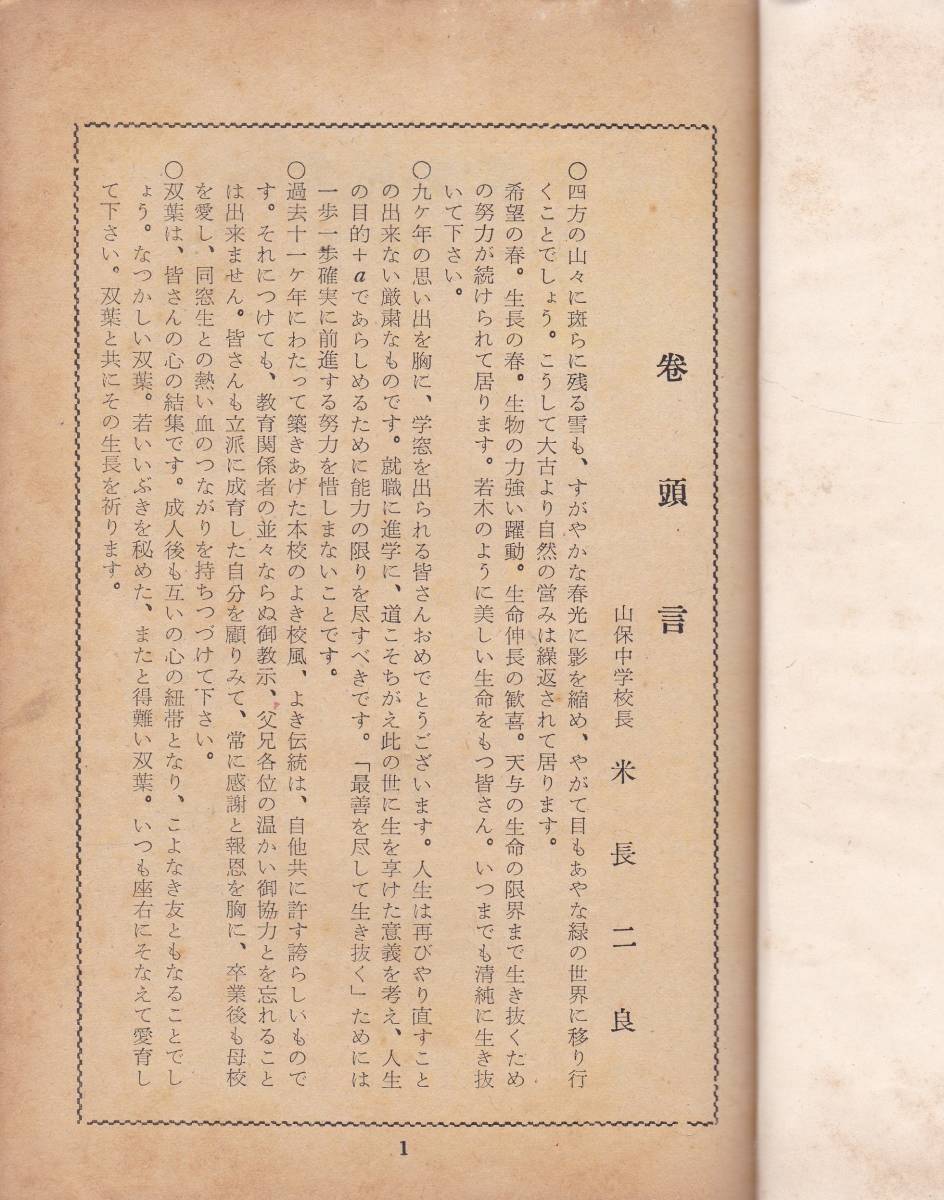 巻頭言
山保中学校長 米長二良
〇四方の山々に斑らに残る雪も、すがやかな春光に影を縮め、やがて目もあやな緑の世界に移り行
くことでしょう。こうして大古より自然の営みは繰返されて居ります。
希望の春。生長の春。生物の力強い躍動。生命伸長の歓喜。天与の生命の限界まで生き抜くため
の努力が続けられて居ります。若木のように美しい生命をもつ皆さん。いつまでも清純に生き抜
いて下さい。
〇九ケ年の思い出を胸に、学窓を出られる皆さんおめでとうございます。人生は再びやり直すこと
の出来ない厳粛なものです。就職に進学に、道こそちがえ此の世に生を享けた意義を考え、人生
の目的+aであらしめるために能力の限りを尽すべきです。「最善を尽して生き抜く」ためには
一歩一歩確実に前進する努力を惜しまないことです。
〇過去十一ケ年にわたって築きあげた本校のよき校風、よき伝統は、自他共に許す誇らしいもので
す。それにつけても、教育関係者の並々ならぬ御教示、父兄各位の温かい御協力とを忘れること
は出来ません。皆さんも立派に成育した自分を顧りみて、常に感謝と報恩を胸に、卒業後も母校
を愛し、同窓生との熱い血のつながりを持ちつづけて下さい。
〇双葉は、皆さんの心の結集です。成人後も互いの心の紐帯となり、こよなき友ともなることでし
ょう。なつかしい双葉。若いいぶきを秘めた、またと得難い双葉。いつも座右にそなえて愛育し
て下さい。双葉と共にその生長を祈ります。
1